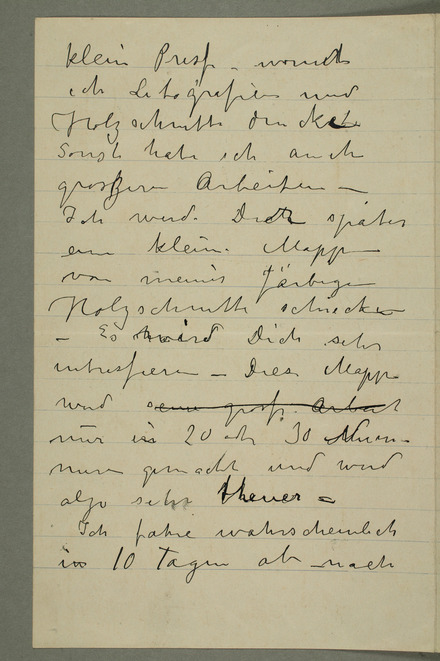 klein Presse – womit
ich Litografien und
Holzschnitte drucke
Sonst habe ich auch
grossere Arbeiten –
Ich werde Dich später
ein klein Mappe
von meine färbige
Holzschnitte schicken
– Es wird Dich sehr
intressieren – Diese Mappe
wird eine gross Arbeit
nur in 20 oder 30
gemacht und wird
also sehr theuer –
Ich fahre wahrscheinlich
in 10 Tagen ab – nach